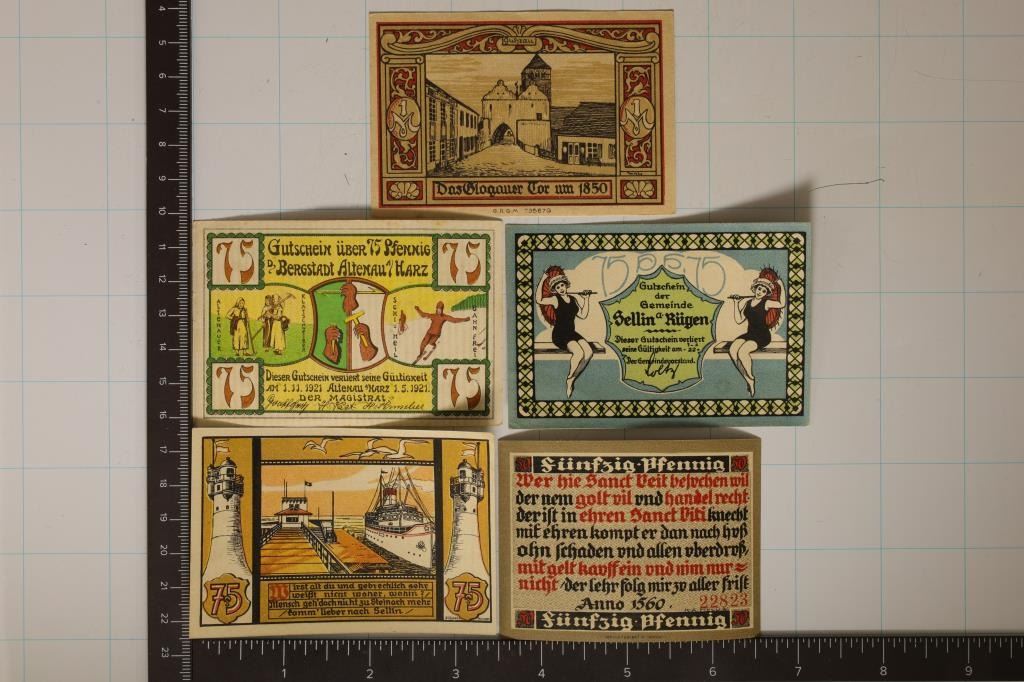 Guhrau
1 M
1 M
Das Glogauer Tor um 1850
D.R.G.M. 795679
75
Gutschein über 75 Pfennig
75
D. Bergstadt Altenau i/ Harz
ALTENAUER
KLATSCHWEIBER
SCHI-HEIL
BAHN FREI
75
Dieser Gutschein verliert seine Gültigkeit
75
AM 1.11.1921 ALTENAU HARZ 1.5.1921.
DER MAGISTRAT
75 75
Gutschein
der
Gemeinde
Sellin a. Rügen
Dieser Gutschein verliert
seine Gültigkeit am
Der Gemeindevorstand.
75
Wirst alt du und gebrechlich sehr
weißt nicht woher, wohin?
Mensch geh doch nicht zu Steinach mehr
komm' lieber nach Sellin
75
50 Fünfzig Pfennig 50
Wer hie Sanct Veit besvchen wil
der nem golt vil vnd handel recht
der ist in ehren Sanct Viti knecht
mit ehren kompt er dan nach hvß
ohn schaden vnd allen vberdrvß,
mit gelt kavff ein vnd nim nur=
nicht der lehr folg mir zv aller frist
Anno 1560. 22823
50 Fünfzig Pfennig 50
4
5
6
7
8
9
10
11
12
13
14
15
16
17
18
19
20
21
22
23
1 2 3 4 5 6 7 8 9